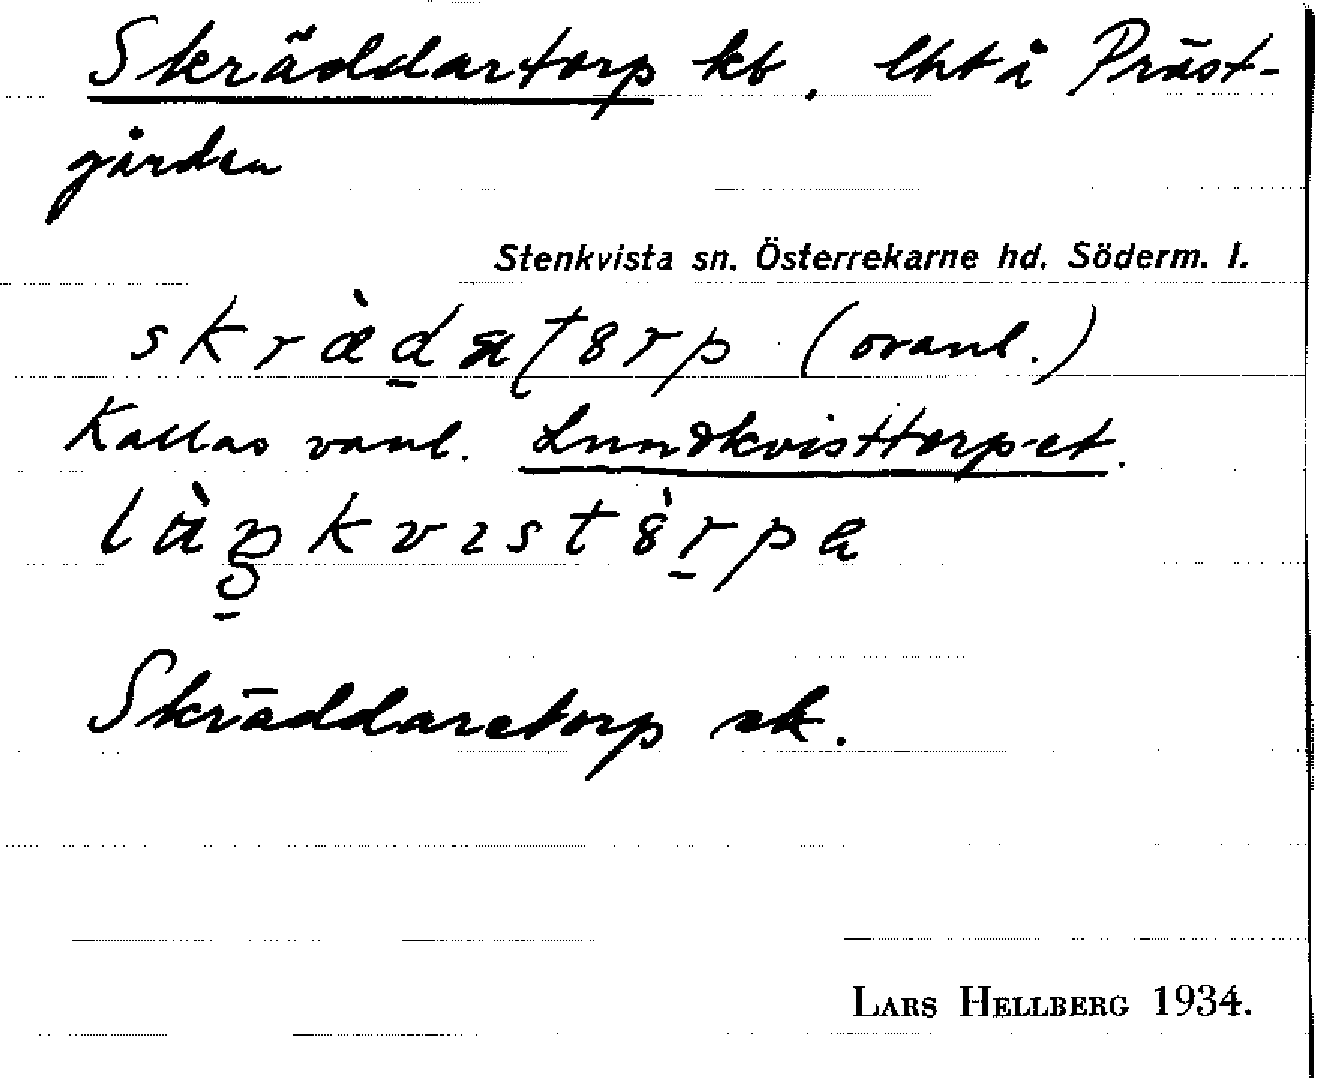 Skräddartorp kb, lht å Präst-
gården
Stenkvista sn. Österrekarne hd. Söderm. l.
(ovanl.)
Kallas vanl. Lundkvisttorpet.
Skräddaretorp ek.
LARS HELLBERG 1934.